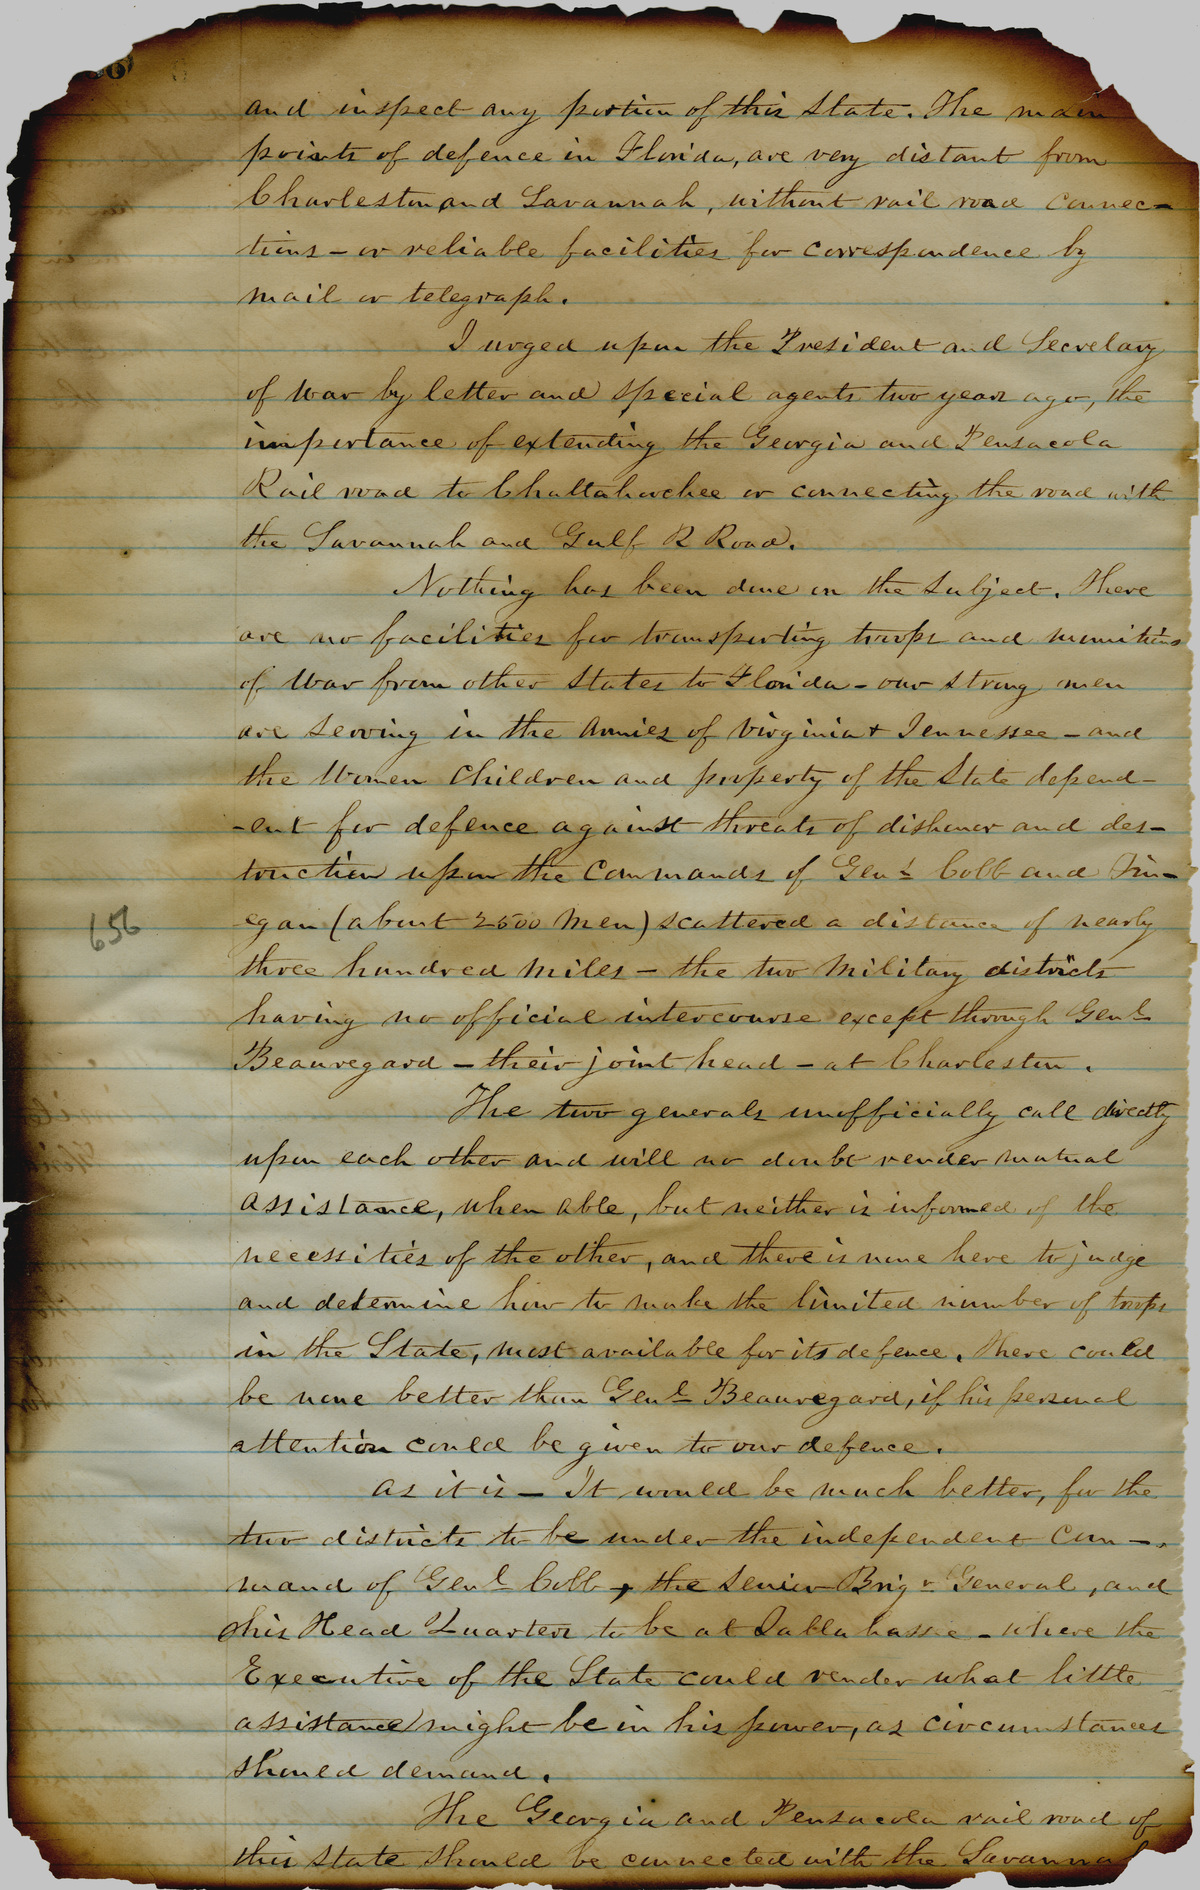 and inspect any portion of this State. The main
points of defence in Florida, are very distant from
Charleston and Savannah, without rail road connec-
tions - or reliable facilities for correspondence by
mail or telegraph.
I urged upon the President and Secretary
of War by letter and special agents two years ago, the
importance of extending the Georgia and Pensacola
Rail road to Chattahoochee or connecting the road with
the Savannah and Gulf R Road.
Nothing has been done on the subject. There
are no facilities for transporting troops and munitions
of War from other States to Florida - our strong men
are serving in the Armies of Virginia & Tennessee - and
the Women Children and property of the State depend-
-ent for defence against threats of dishonor and des-
truction upon the Commands of Genls Cobb and Fin-
egan (about 2500 Men) scattered a distance of nearly
656
three hundred Miles - the two Military districts
having no official intercourse except through Genl
Beauregard - their joint head - at Charleston.
The two generals unofficially call directly
upon each other and will no doubt render mutual
assistance, when able, but neither is informed of the
necessities of the other, and there is none here to judge
and determine how to make the limited number of troops
in the State, most available for its defence. There could
be none better than Genl Beauregard, if his personal
attention could be given to our defence.
As it is - It would be much better, for the
two districts to be under the independent Com-
mand of Genl Cobb, the Senior Brigr General, and
his Head Quarters to be at Tallahassee - where the
Executive of the State could render what little
assistance might be in his power, as circumstances
should demand.
The Georgia and Pensacola rail road of
this State should be connected with the Savannah